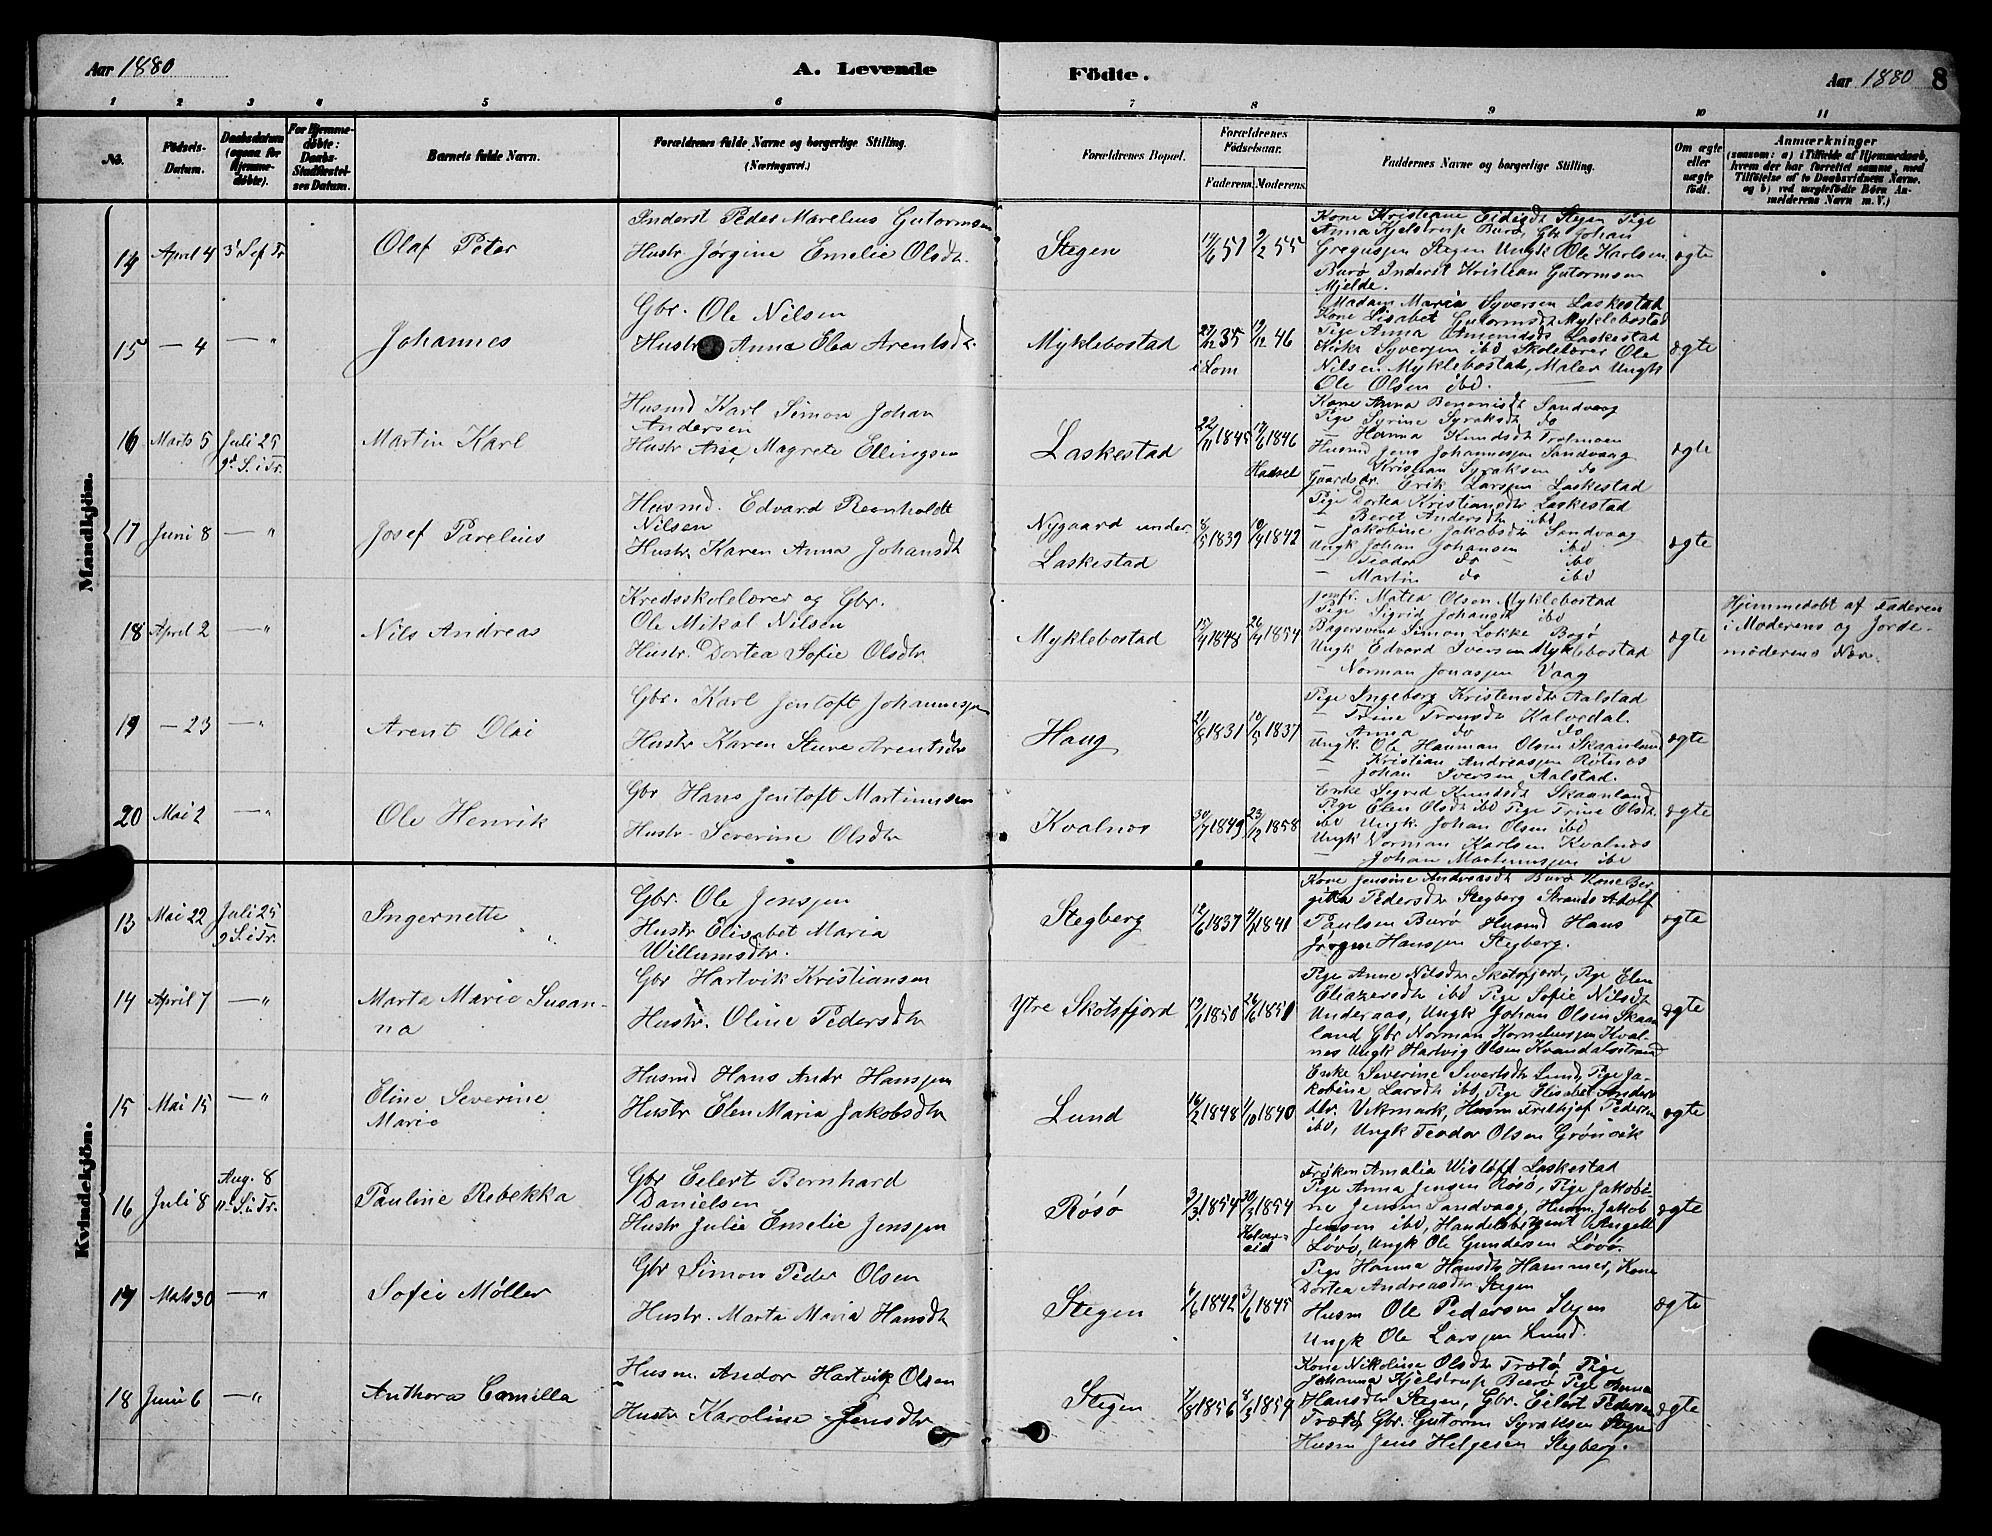 Aar 1880
A. Levende
Födte.
Aar 1880
8
1 2 3 4 5 6 7 8 9 10 11
No.
Födsels-Datum.
Daabsdatum (ogsaa for Hjemme-döbte).
For Hjemme-döbte: Daabs-Stadfæstel-ses Datum.
Barnets fulde Navn.
Forældrenes fulde Navne og borgerlige Stilling.
(Næringsvei.)
Forældrenes Bopæl.
Forældrenes Födselsaar.
Faderens. Moderens.
Faddernes Navne og borgerlige Stilling.
Om ægte eller uægte födt.
Anmærkninger
(saasom: a) i Tilfælde af Hjemmedaab, hvem der har forrettet samme, med Tilföielse af to Daabsvidners Navne. og b) ved uægtefödte Börn An-melderens Navn m. V.)
Mandkjön.
14 April 4 3' S. ef Tr
Olaf Peter
Inderst Peder Marelius Gutormsen
Hustr Jørgine Emelie Olsdtr.
Stegen
14/6 51 9/2 55
Kone Kristiane Eidisdt Stegen Pige
Anna Kjelstrup Burø Gbr Johan
Gregusjen Stegen Ungk Ole Karlsen
Burø Inderst Kristian Gutormsen
Mjelde.
ægte
15 — 4 — "
Johannes
Gbr. Ole Nilsen
Hustr Anna Elea Arentsdt.
Myklebostad
27/12 35 i Lom
19/12 46
Madam Maria Syversen Laskestad
Kone Lisabet Gutormsdt Myklebostad
Pige Anna Amundsdt Laskestad
Kirks Syversen ibd Skolelærer Ole
Nilsen Myklebostad, Maler Ungk
Ole Olsen ibd.
ægte
16 Marts 5 Juli 25
9d S. i Tr.
Martin Karl
Husmd Karl Simon Johan
Andersen
Hustr Ane Magrete Ellingsen
Laskestad
22/11 1845 17/6 1846
Hadsel
Kone Anna Benonisdt Sandvaag
Pige Syrine Syraksdt do
— Hanna Knudsdt Trolmoen
Husmd Jens Johannesjen Sandvaag
— Kristian Syraksen do
Gaardsdr. Erik Larsjen Laskestad
ægte
17 Juni 8 — "
Josef Parelius
Husmd. Edvard Reonholdt
Nilsen
Hustr Karen Anna Johansdt
Nygaard under
Laskestad
8/5 1839 19/4 1842
Pige Dortea Kristiansdtr Laskestad
— Beret Andersdtr ibd
— Jakobine Jakobsdtr Sandvaag
Ungk Johan Johansen ibd
— Teodor do — ibd
— Martin do ibd
ægte
18 April 2 — "
Nils Andreas
Kredsskolelærer og Gbr.
Ole Mikal Nilsen
Hustr. Dortea Sofie Olsdtr
Myklebostad
15/4 1848 26/4 1854
Jomfr. Matea Olsen Myklebostad
Pige Sigrid Johansdt ibd
Bagersvend Simon Løkke Bogø
Ungk Edvard Iversen Myklebostad
— Norman Jonasjen Vaag
ægte
Hjemmedøbt af Faderen
i Moderens og Jorde-
moderens Nær.
19 — 23 — "
Arent Olai
Gbr. Karl Jentoft Johannesjen
Hustr Karen Sture Arentsdtr
Haug
21/8 1831 10/5 1837
Pige Ingeborg Kristensdtr Aalstad
— Trine Tronsdtr Kalvedal.
— Anna do do
Ungk. Ole Hauman Olsen Skaanland
— Kristian Andreasjen Røtnes
— Johan Iversen Aalstad.
ægte
20 Mai 2 — "
Ole Henrik
Gbr Hans Jentoft Martinussen
Hustr. Severine Olsdtr
Kvalnes
30/7 1849 23/12 1858
Enke Sigrid Knudsdt Skaanland
Pige Elen Olsdtr ibd Pige Trine Olsdtr
ibd Ungk. Johan Olsen ibd
Ungk Norman Karlsen Kvalnes
— Johan Martinusjen ibd
ægte
Kvindekjön.
13 Mai 22 Juli 25
9 S. i Tr.
Ingernette
Gbr. Ole Jensjen
Hustr Elisabet Maria
Willumsdtr.
Stegberg
12/6 1837 4/11 1841
Kone Jensine Andreasdt Burø Kone Ber-
githa Pedersdtr Stegberg Strands Adolf
Paulsen Burø Husmd Hans
Jørgen Hansjen Stegberg.
ægte
14 April 7 — "
Marta Marie Susan-
na
Gbr Hartvik Kristiansen
Hustr. Oline Pedersdtr
Ytre Skotsfjord
19/1 1850 26/6 1851
Pige Anne Nilsdtr Skotsfjord, Pige Elen
Eliazersdtr ibd Pige Sofie Nilsdtr
Underaas, Ungk Johan Olsen Skaan
land Gbr Norman Korneliussen Kval-
nes Ungk Hartvig Olsen Kvandalsstrand
ægte
15 Mai 15 — "
Eline Severine
Marie
Husmd Hans Andr Hansjen
Hustr Elen Maria Jakobsdtr
Lund
16/2 1848 1/10 1840
Enke Severine Sivertsdtr Lund, Pige Ja-
kobine Larsdtr ibd, Pige Elisabet Anders
dtr. Vikmark, Husm Fridhjof Pedersen
ibd, Ungk Teodor Olsen Grønvik
ægte
16 Juli 8 Aug. 8
11 S. i Tr.
Pauline Rebekka
Gbr Eilert Bernhard
Danielsen
Hustr Julie Emelie Jensjen
Røsø
3/3 1854 30/3 1854
Kolver-
eid
Frøken Amalia Wisløff Laskestad
Pige Anna Jensen Røsø, Pige Jakobi-
ne Jensen Sandvaag, Husm. Jakob
Jensen ibd, Handelsbetjent Angell
Løvø, Ungk Ole Gundersen Løvø.
ægte
17 Mai 30 — "
Sofie Møller
Gbr Simon Peder Olsen
Hustr. Marta Maria Hansdtr
Stegen
1/6 1842 3/6 1845
Pige Hanna Hansdtr Hammer, Kone
Dortea Andreasdtr Stegen
Husm Ole Pedersen Stegen
Ungk Ole Larsjen Lund.
ægte
18 Juni 6 — "
Anthora Camilla
Husm. Andor Hartvik Olsen
Hustr Karoline Jensdtr
Stegen
1/8 1856 8/3 1859
Kone Nikoline Olsdtr Trøtø Pige
Johanna Kjelstrup Burø Pige Anna
Hansdtr Stegen, Gbr. Eilert Pedersen
Trøtø Gbr. Gutorm Syraksen Stegen
Husm Jens Helgesen Stegberg.
ægte